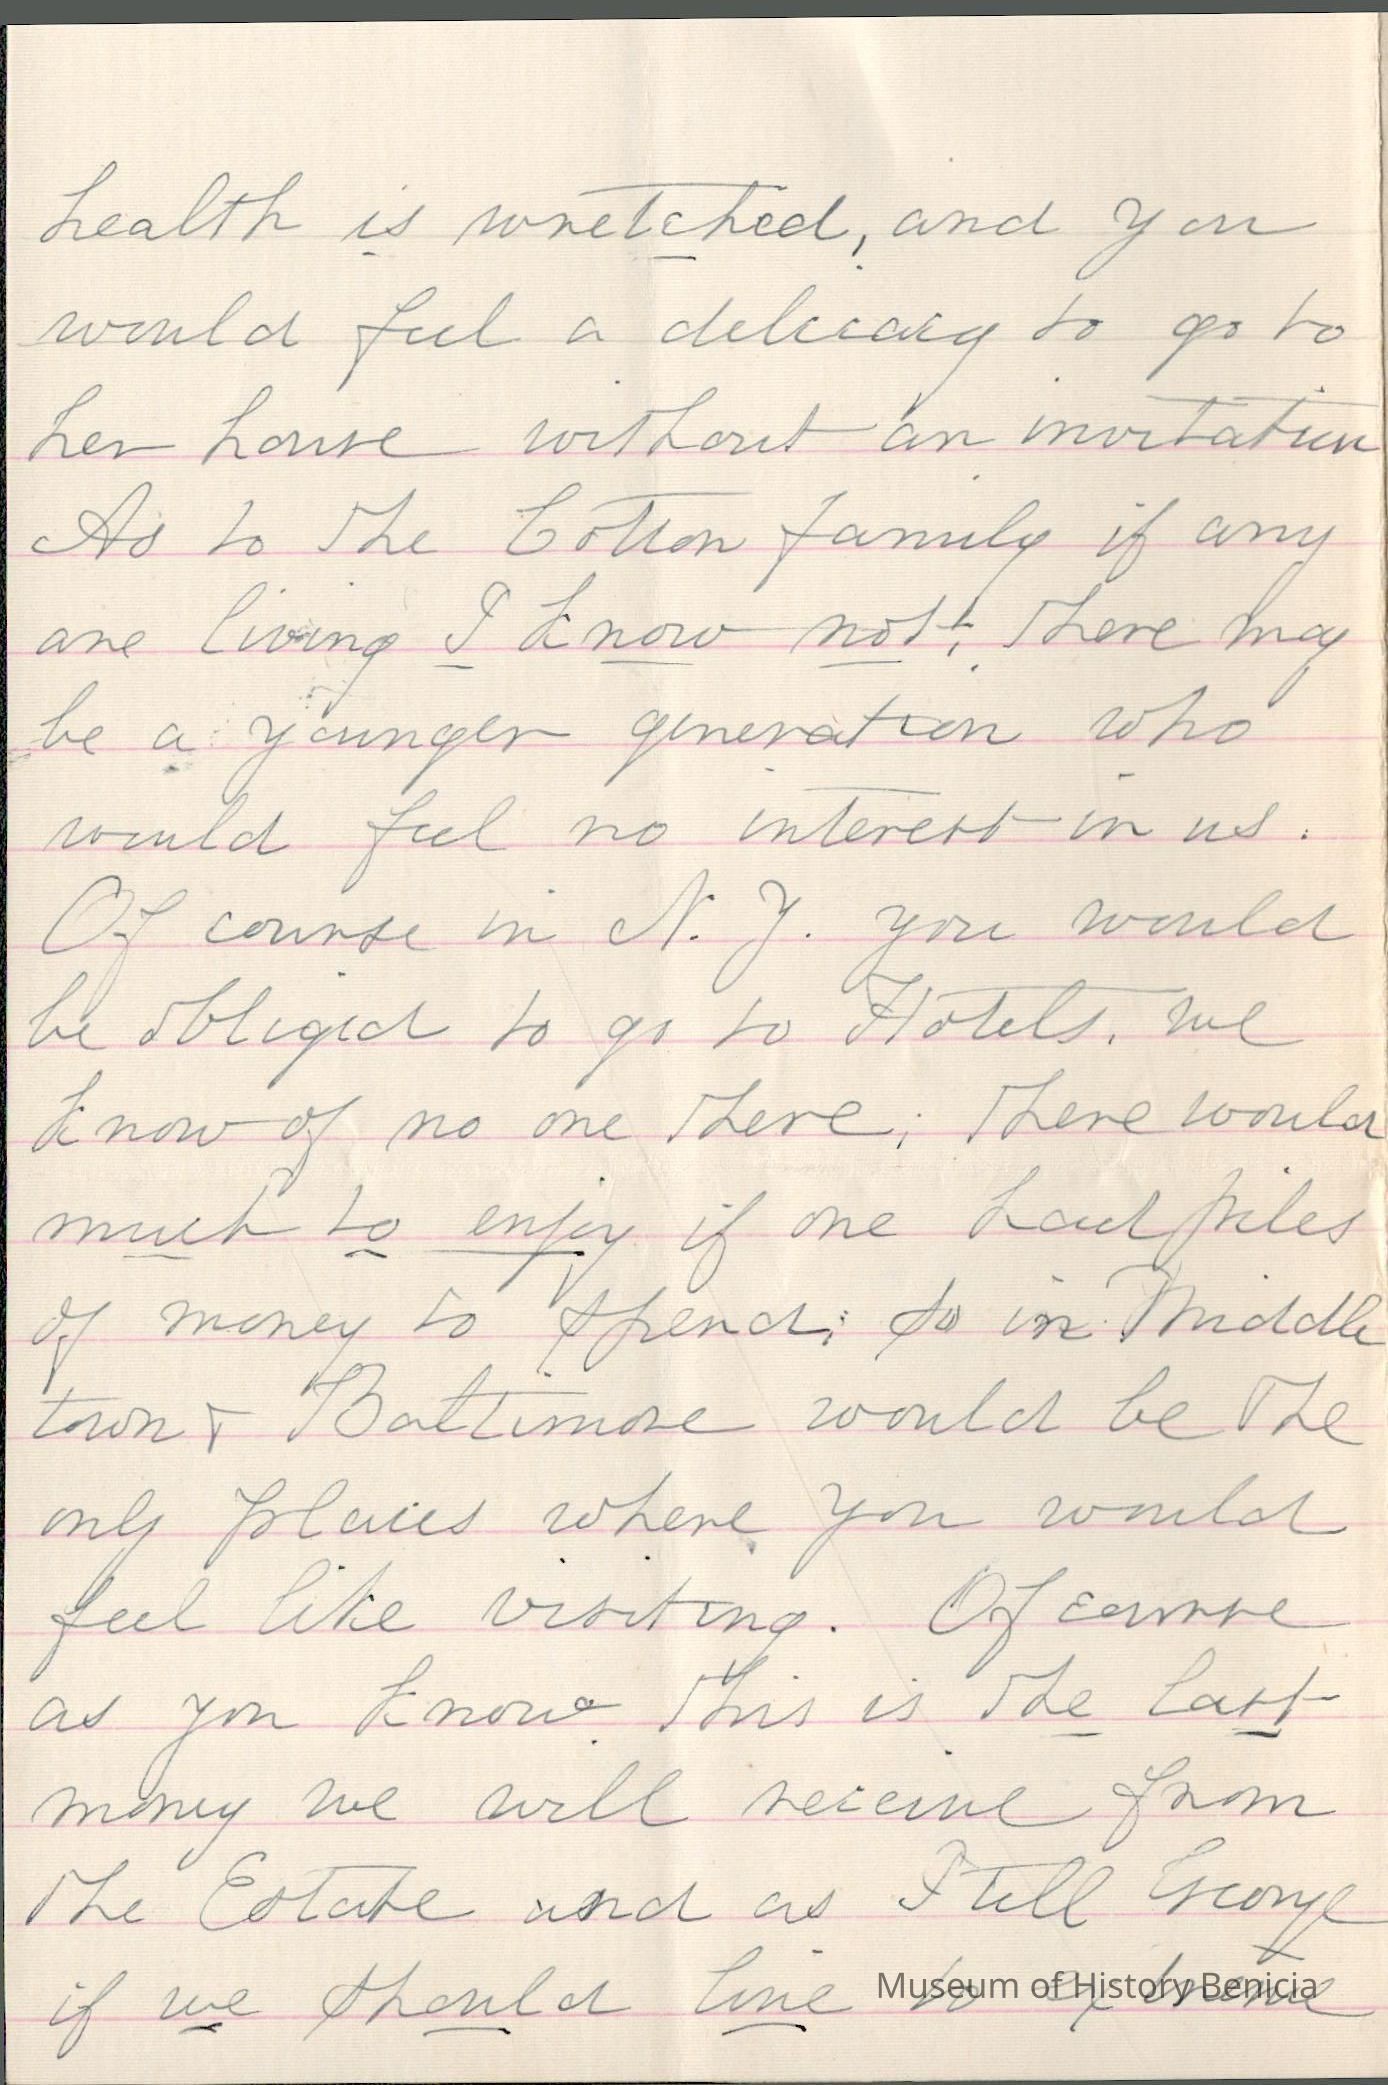 health is wretched, and you
would feel a delicacy to go to
her house without an invitation
As to the Cotton family if any
are living I know not; there may
be a younger generation who
would feel no interest in us.
Of course in N. Y. you would
be obliged to go to Hotels. we
know of no one there; there would
much to enjoy if one had piles
of money to spend; so in Middle
town & Baltimore would be the
only places where you would
feel like visiting. Of course
as you know this is the last
money we will receive from
the Estate and as I tell George
if we should live to extreme
Museum of History Benicia